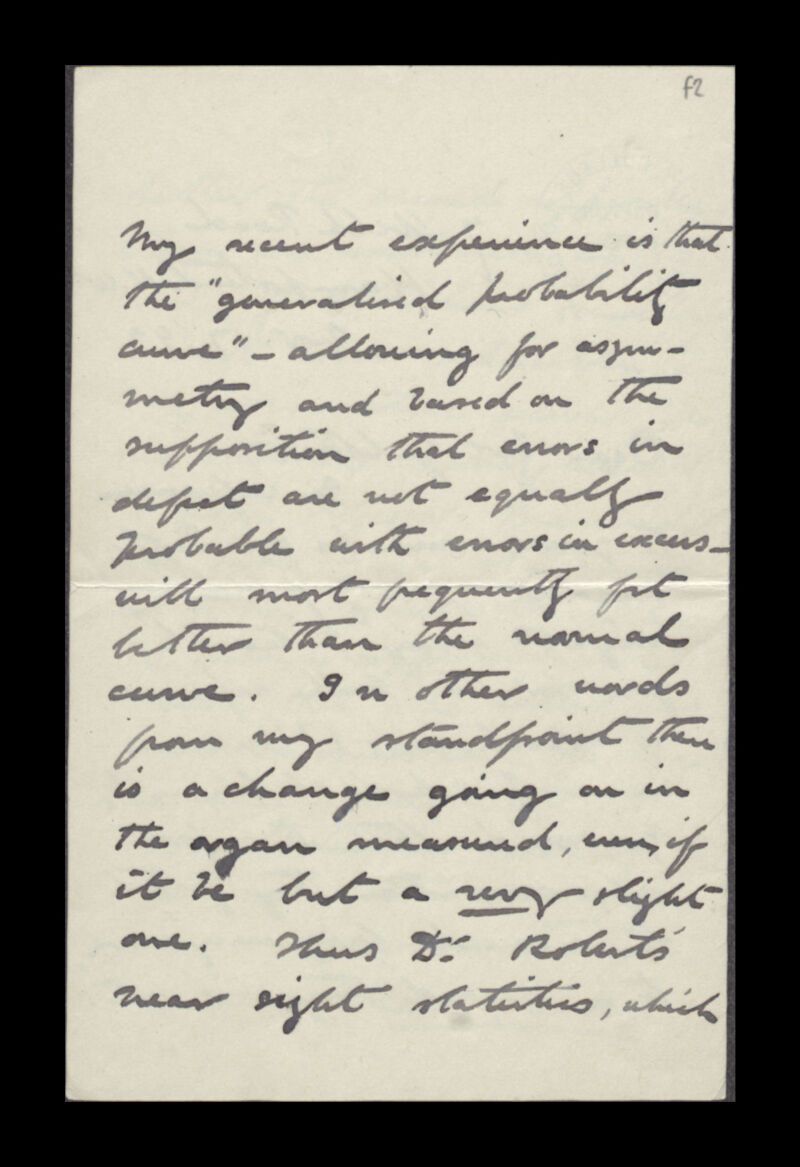 f2
My recent experience is that
the "generalised probability
curve" – allowing for asym-
metry and based on the
supposition that errors in
defect are not equally
probable with errors in excess –
will most frequently fit
better than the normal
curve. In other words
from my standpoint there
is a change going on in
the organ measured, even if
it be but a very slight
one. Thus Dr. Roberts'
near sight statistics, which